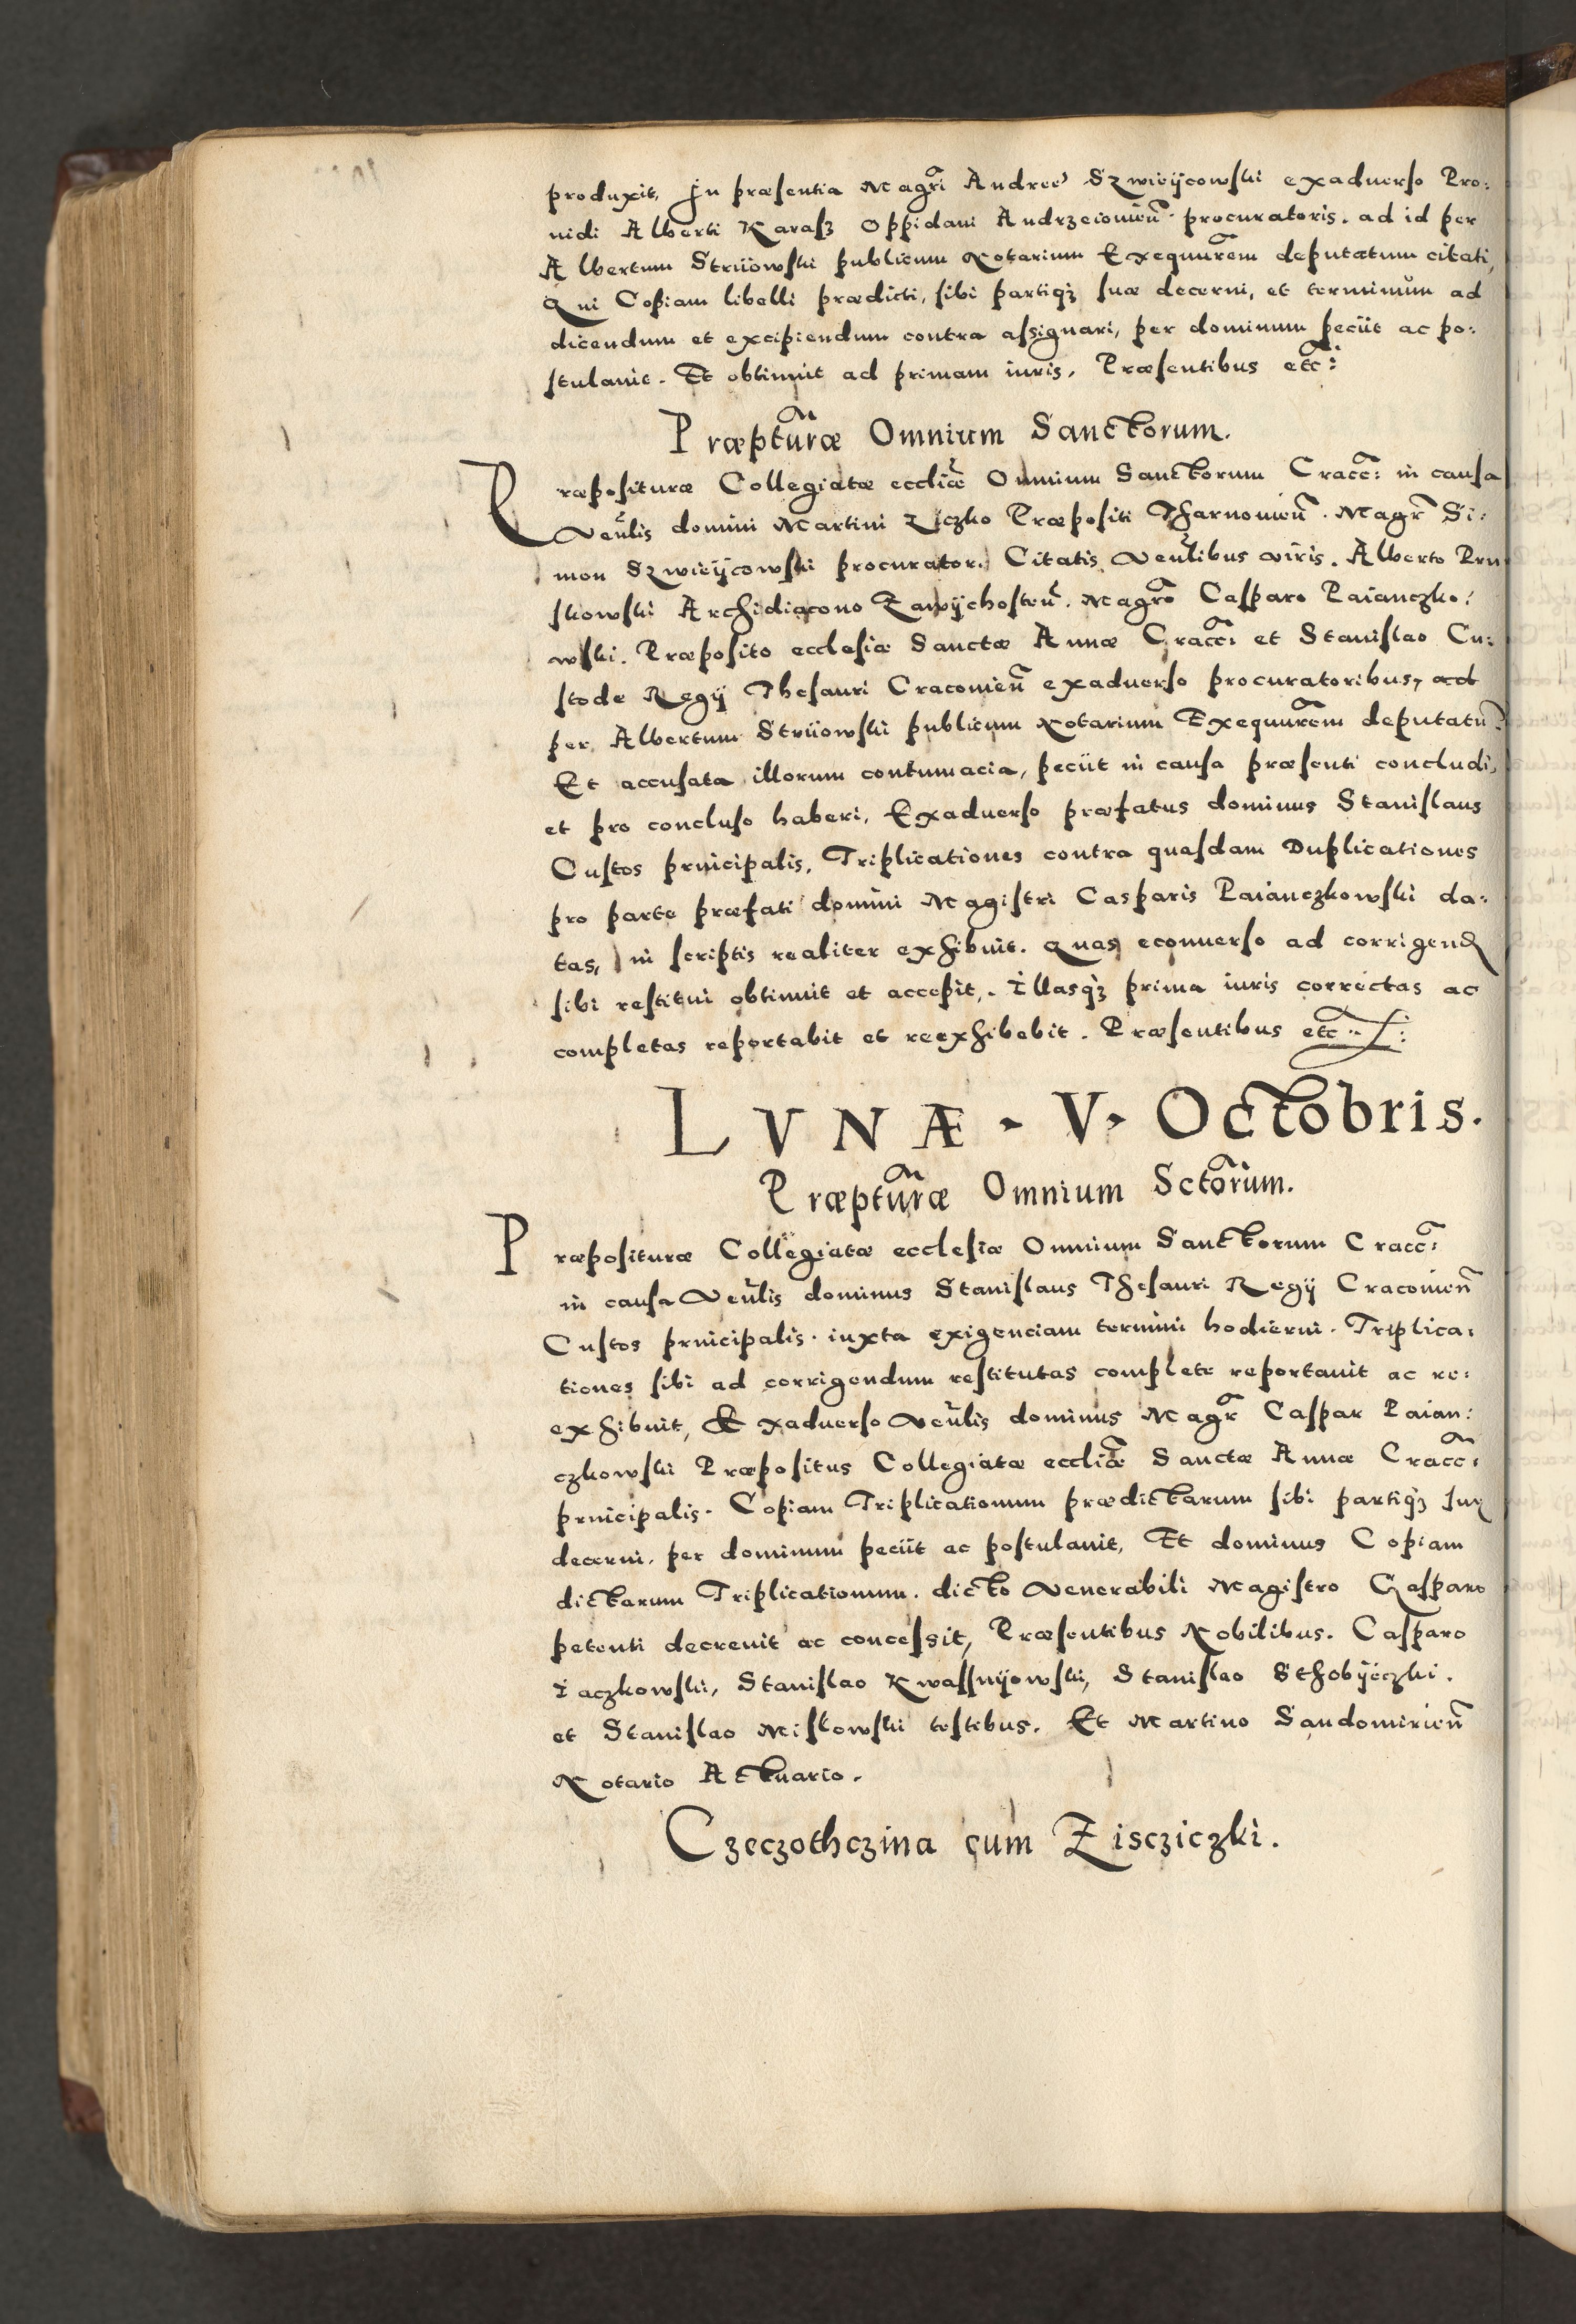 produxit, In præsentia Magr̃i Andreę Szwieÿcowski exaduerso Pro:
uidi Alberti Karasz Oppidani Andrzeiouieñ procuratoris. ad id per
Albertum Strüowski publicum Notarium Exequurẽm deputatum citati,
Qui Copiam libelli prædicti, sibi partiqꝫ suæ decerni, et terminum ad
dicendum et excipiendum contra assignari, per dominum pecüt ac po:
stulauit. Et obtinuit ad primam iuris. Præsentibus etc̃:
Præptũræ Omnium Sanctorum.
Præposituræ Collegiatæ eccliæ̃ Omnium Sanctorum Cracc̃: in causa
Veñlis domini Martini Liczko Præpositi Tharnouieñ. Magr̃ Si:
mon Szwieÿcowski procurator. Citatis Veñlibus viris. Alberto Pru
skowski Archidiacono Zawÿchosteñ. Magrõ Casparo Paianczko:
wski. Præposito ecclesiæ Sanctæ Annæ Cracc̃: et Stanislao Cu:
stode Regÿ Thesauri Cracouieñ exaduerso procuratoribus, ad
per Albertum Strüowski publicum Notarium Exequurẽm deputatũ:
Et accusata illorum contumacia, pecüt in causa præsenti concludi,
et pro concluso haberi, Exaduerso præfatus dominus Stanislaus
Custos principalis, Triplicationes contra quasdam Duplicationes
pro parte præfati domini Magistri Casparis Paianczkowski da:
tas, in scriptis realiter exhibuit. Quas econuerso ad corrigend
sibi restitui obtinuit et accepit. Illasqꝫ prima iuris correctas ac
completas reportabit et reexhibebit. Præsentibus etc̃:
LVNÆ V Octobris.
Præptũræ Omnium Sctorũm.
Præposituræ Collegiatæ ecclesiæ Omnium Sanctorum Cracc̃:
in causa Veñlis dominus Stanislaus Thesauri Regÿ Cracouieñ
Custos principalis. iuxta exigenciam termini hodierni. Triplica:
tiones sibi ad corrigendum restitutas complete reportauit ac re:
exhibuit, Exaduerso Veñlis dominus Magr̃ Caspar Paian:
czkowski Præpositus Collegiatæ eccliæ̃ Sanctæ Annæ Cracc̃:
principalis. Copiam Triplicationum prædictarum sibi partiqꝫ suę
decerni. per dominum pecüt ac postulauit, Et dominus Copiam
dictarum Triplicationum. dicto Venerabili Magistro Casparo
petenti decreuit ac concessit, Præsentibus Nobilibus. Casparo
Iaczkowski, Stanislao Kwassnÿowski, Stanislao Sthobÿeczki.
et Stanislao Miskowski testibus. Et Martino Sandomirieñ
Notario Actuario.
Czeczothczina cum Ziscziczki.